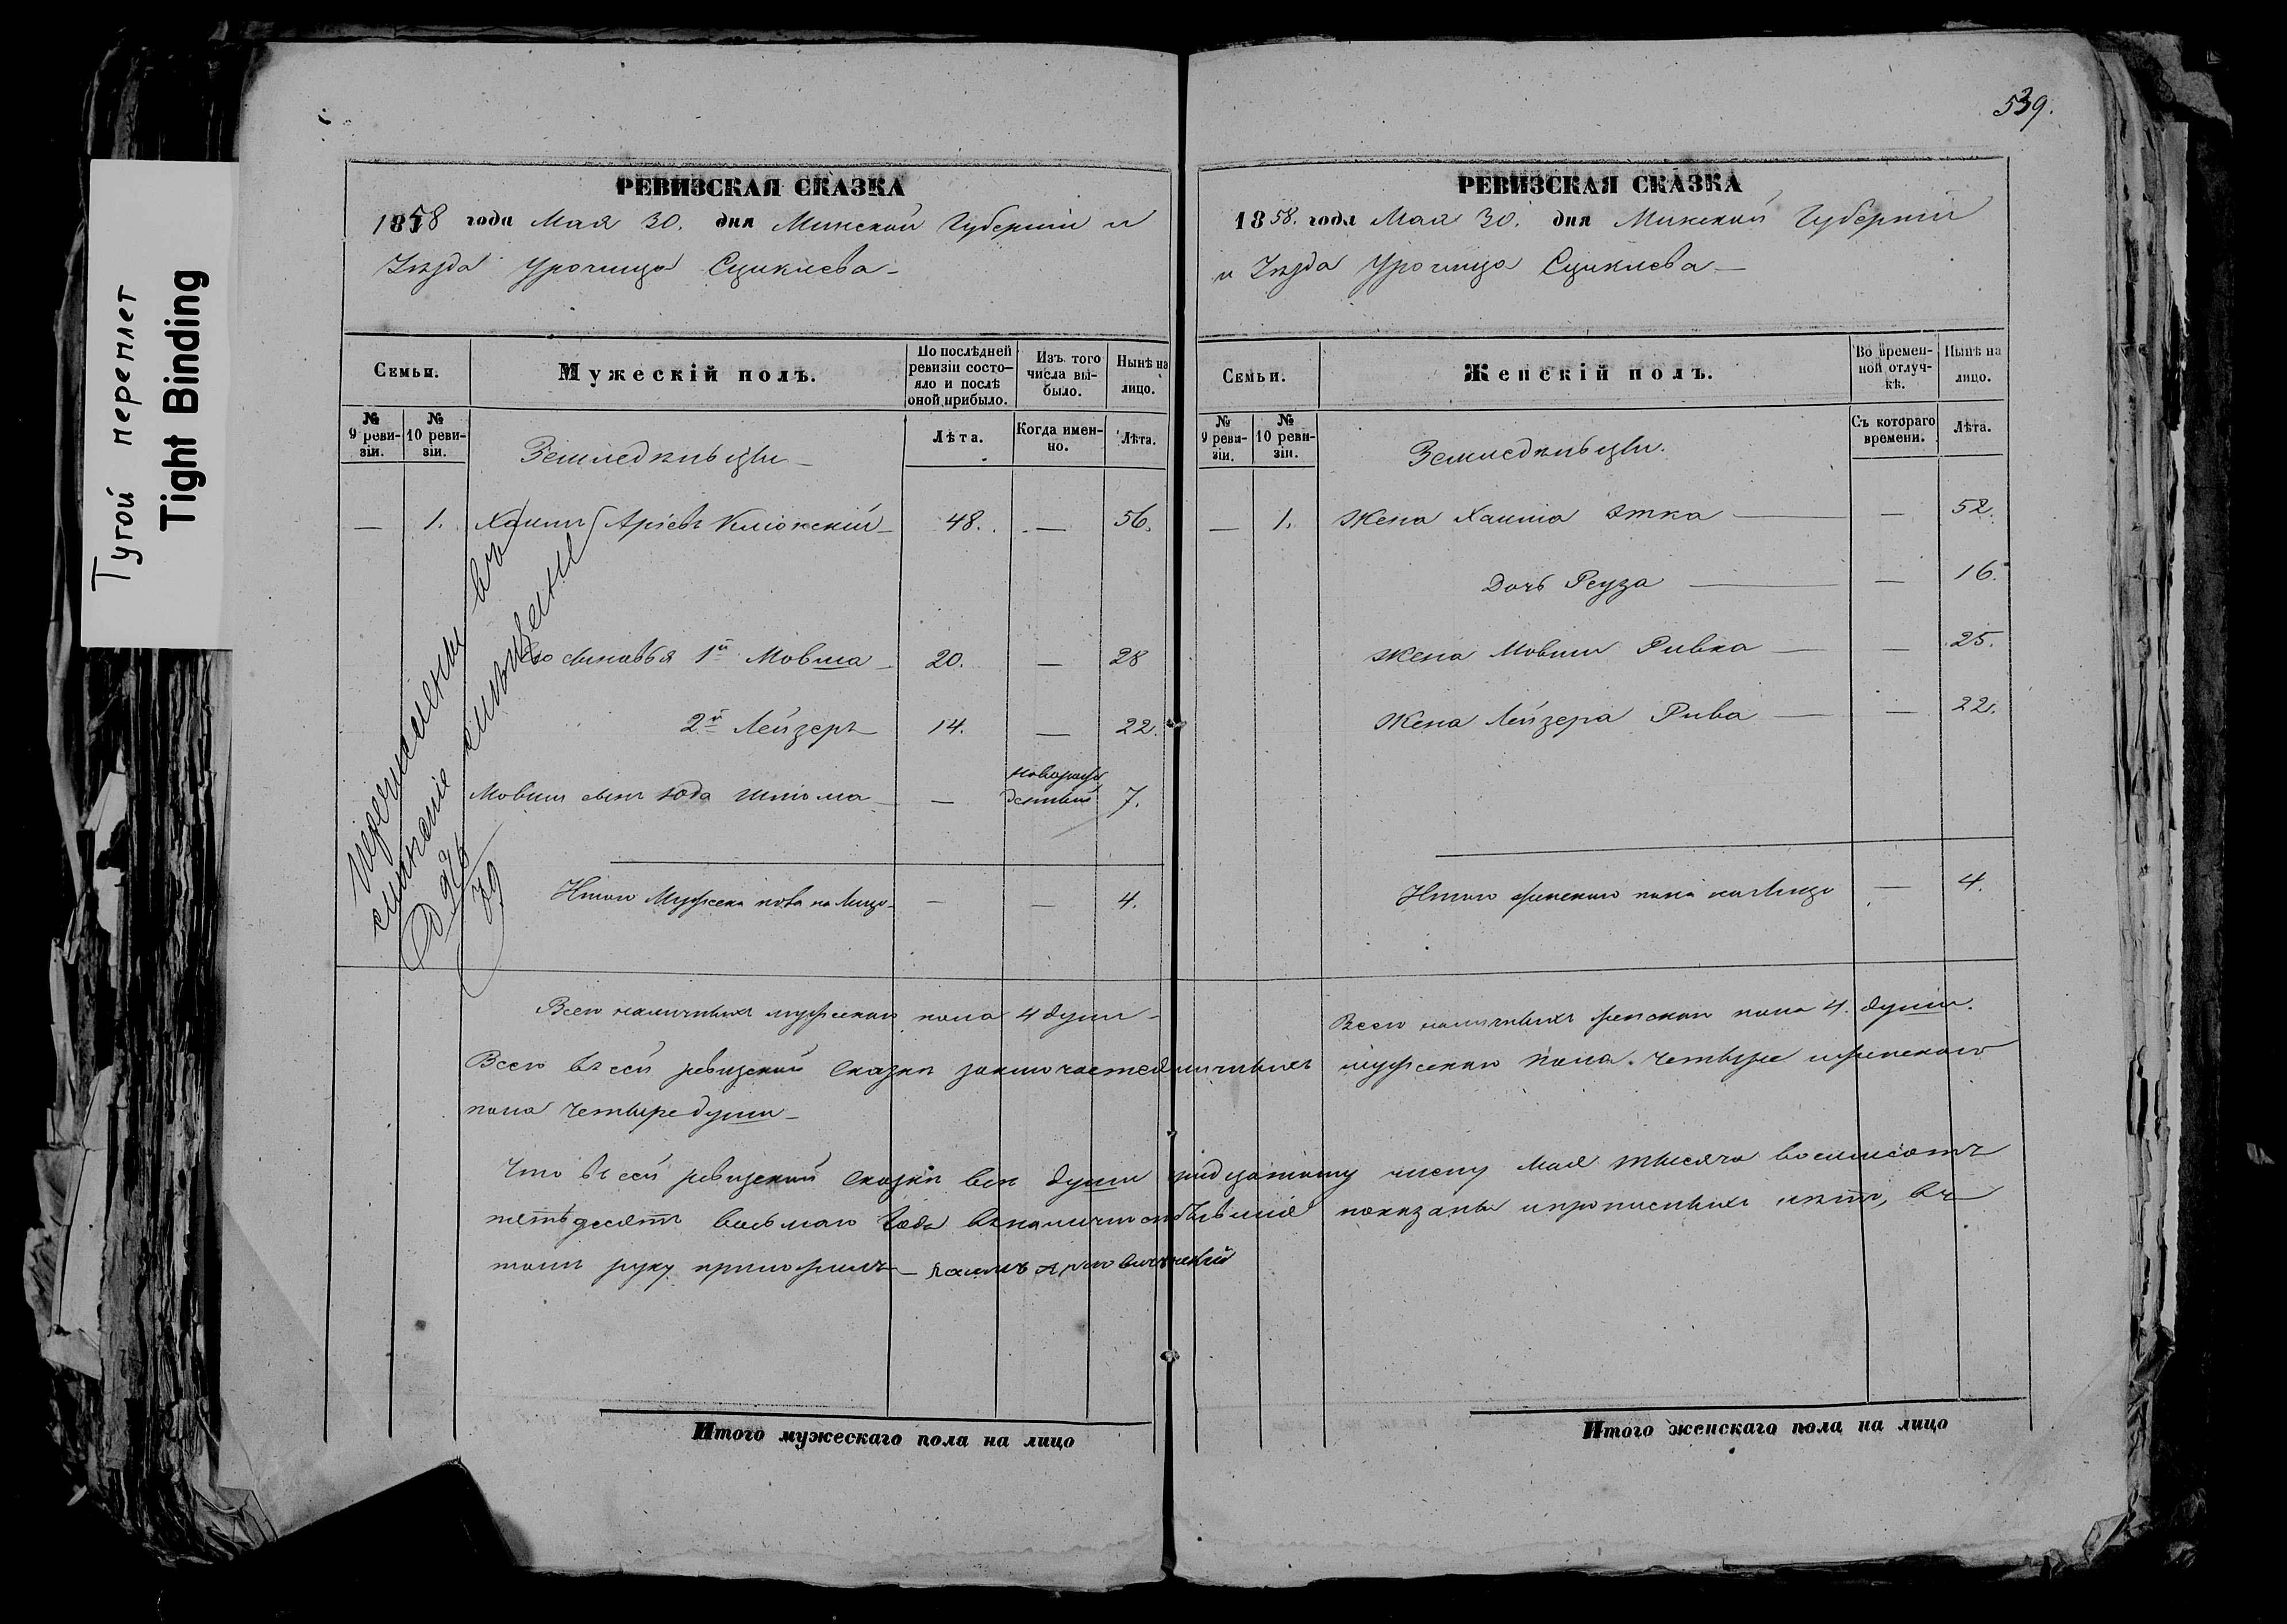 Тугой переплет
Tight Binding
539.
РЕВИЗСКАЯ СКАЗКА
1858 года Мая 30. дня Минской Губерніи и
Уѣзда Урочища Сциклева
Семьи.
Мужескій полъ.
По послѣдней ревизіи состояло и послѣ оной прибыло.
Изъ того числа выбыло.
Нынѣ на лицо.
№ 9 ревизіи.
№ 10 ревизіи.
Лѣта.
Когда именно.
Лѣта.
Земледѣльцы
— 1. Хаимъ Аріевъ 48. — 56.
сыновья 1й Мовша 20. — 28
2й Лейзеръ 14. — 22.
Мовши сынъ Юда Шліома — новорожденный 7.
Итого Мужеска пола на лицо — — 4.
Перечислены въ
Всего наличныхъ мужскаго пола 4 души
РЕВИЗСКАЯ СКАЗКА
1858. года Мая 30. дня Минской Губерніи
и Уѣзда Урочища Сциклева
Семьи.
Женскій полъ.
Во временной отлучкѣ.
Нынѣ на лицо.
№ 9 ревизіи.
№ 10 ревизіи.
Съ котораго времени.
Лѣта.
Земледѣльцы.
— 1. Жена Хаима Этка — 52.
Дочь Реуза — 16.
Жена Мовши Ривка — 25.
Жена Лейзера Рива — 22.
Итого женскаго пола на лицо — 4.
Всего наличныхъ женскаго пола 4. души.
Всего въ сей ревизской сказкѣ заключается наличныхъ мужскаго пола четыре и женскаго
пола четыре души
Что въ сей ревизской сказкѣ всѣ души тридцатому числу Мая тысяча восемьсотъ
пятьдесятъ восьмаго года въ наличности бывшіе показаны и прописныхъ нѣтъ, въ
томъ руку приложилъ
Итого мужескаго пола на лицо
Итого женскаго пола на лицо